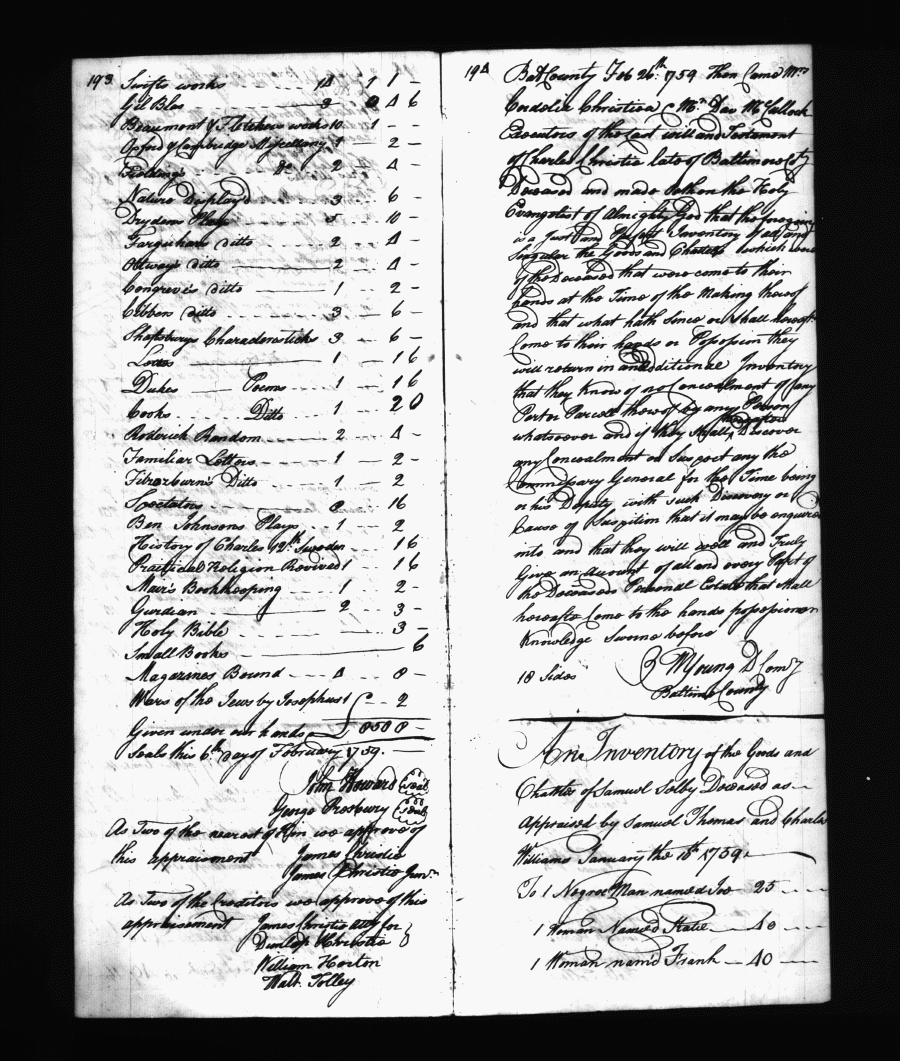 193
Swifts works 14 1 1 -
Gil Blas 3 0 4 6
Beaumont & Fletchers works 10 1 - -
Oxford & Cambridge Miscellany 1 - 2 -
Fieldings do 2 4 -
Nature Display'd 3 6 -
Drydens Plays 5 10 -
Farquhars ditto 2 4 -
Ottways ditto 2 4 -
Congreve's ditto 1 2 -
Cibbers ditto 3 6 -
Shaftsburys Charactersticks 3 6 -
1 1 6
Dukes Poems 1 1 6
Cooks Ditto 1 2 0
Roderick Random 2 4 -
Familiar Letters 1 2 -
Fitzozburn's Ditto 1 2
Spectators 8 16
Ben Johnsons Plays 1 2
History of Charles 12th Sweden 1 6
Practical Religion Revived 1 1 6
Mair's Bookkeeping 1 2 -
Gurdian 2 3 -
Holy Bible 3 -
Small Books 6
Magazines Bound 4 8 -
Wars of the Jews by Josephus 1 - 2
Given under our hands &
Seals this 6th day of February 1759.
John Howard (seal)
George Presbury (seal)
As Two of the nearest of Kin we approve of
this appraisement James Christie
James Christie Junr
As Two of the Creditors we approve of this
appraisement James Christie atty for
Dunlop Christie
William Horton
Walt. Tolley
194
Balt County Feb 26th 1759 Then Came Mrs
Cordelia Christie & Mr Dav McCulloch
Executors of the Last will and Testament
of Charles Christie late of Baltimore Cty
Deceased and made Oath on the Holy
Evangelist of Almighty God that the foregoing
is a Just and Perfect Inventory of all and
Singular the Goods and Chattels which were
of the Deceased that were come to their
hands at the Time of the Making thereof
and that what hath Since or shall hereafter
Come to their hands or Possession they
will return in an Additional Inventory
that they know of no Concealment of any
Part or Parcell thereof by any Person
whatsoever and if they shall hereafter Discover
any Concealment or Suspect any the
Commissary General for the Time being
or his Deputy with such Discovery or
Cause of Suspition that it may be enquired
into and that they will well and Truly
Give an Account of all and every Part of
the Deceaseds Personal Estate that shall
hereafter Come to the hands possession or
Knowledge Sworne before
18 Sides W Young D Comy
Baltimore County
An Inventory of the Goods and
Chattles of Samuel Selby Deceased as
Appraised by Samuel Thomas and Charles
Williams January the 16th 1759
To 1 Negroe Man named Joe 25 - -
1 Woman Named Katie 40 - -
1 Woman namd Frank 40 - -